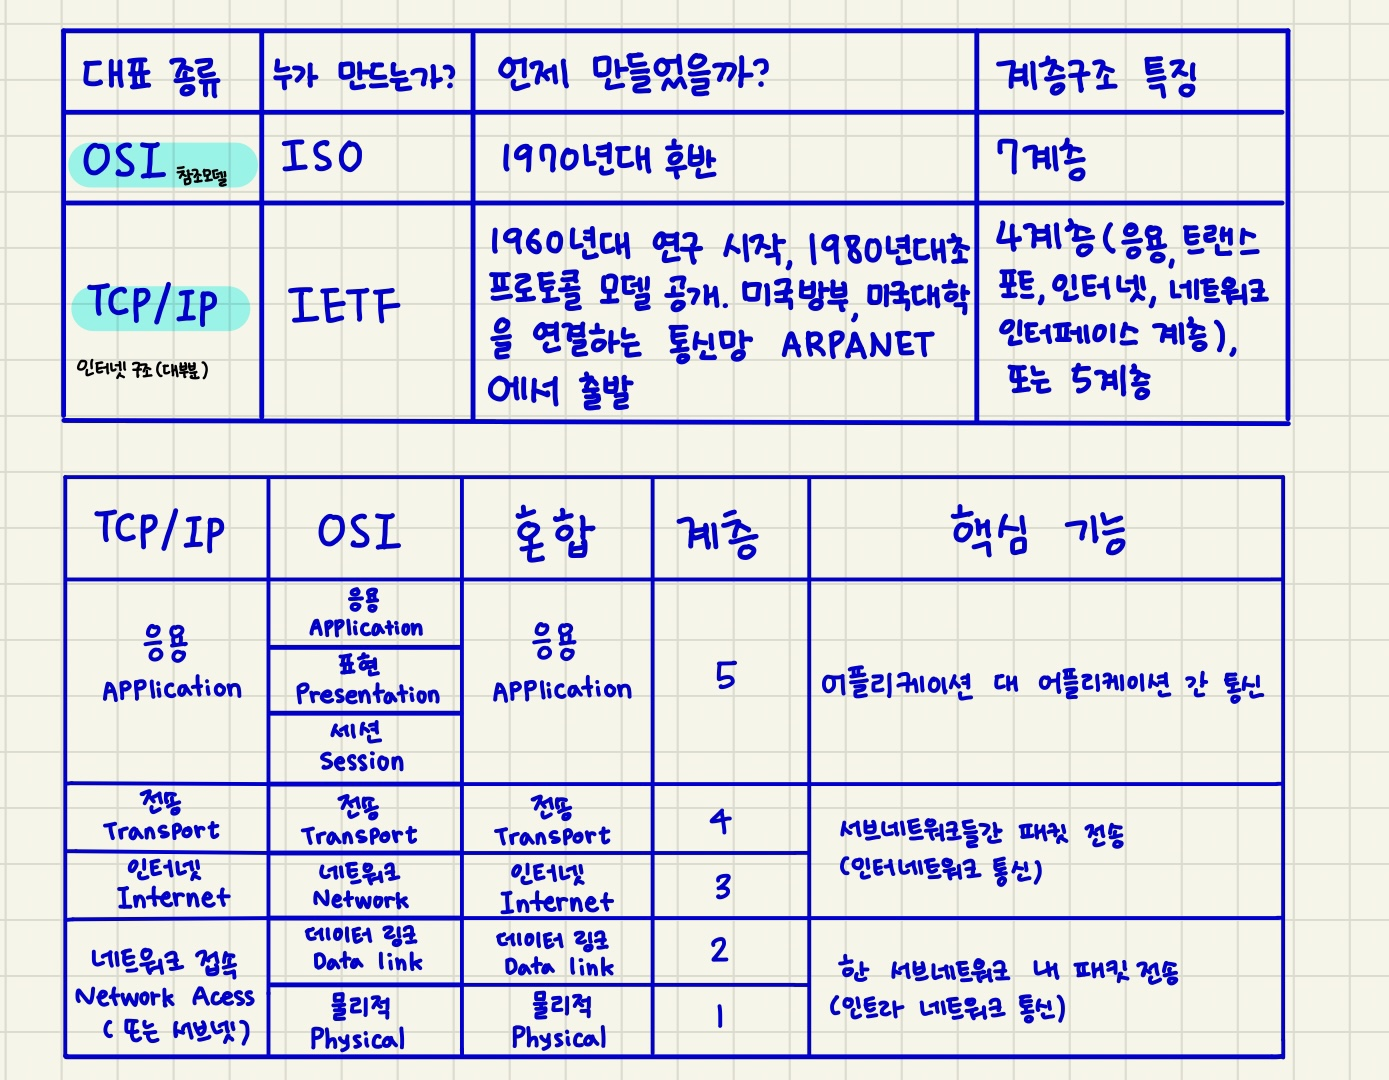 대표 종류
누가 만드는가?
언제 만들었을까?
계층구조 특징
OSI 참조모델
ISO
1970년대 후반
7계층
TCP/IP
인터넷 구조(대부분)
IETF
1960년대 연구 시작, 1980년대초
프로토콜 모델 공개. 미국방부, 미국대학
을 연결하는 통신망 ARPANET
에서 출발
4계층(응용, 트랜스
포트, 인터넷, 네트워크
인터페이스 계층),
또는 5계층
TCP/IP
OSI
혼합
계층
핵심 기능
응용
APPlication
응용
APPlication
표현
Presentation
세션
Session
응용
APPlication
5
어플리케이션 대 어플리케이션 간 통신
전송
Transport
전송
Transport
전송
Transport
4
서브네트워크들간 패킷 전송
(인터네트워크 통신)
인터넷
Internet
네트워크
Network
인터넷
Internet
3
네트워크 접속
Network Acess
(또는 서브넷)
데이터 링크
Data link
데이터 링크
Data link
2
한 서브네트워크 내 패킷 전송
(인트라 네트워크 통신)
물리적
Physical
물리적
Physical
1